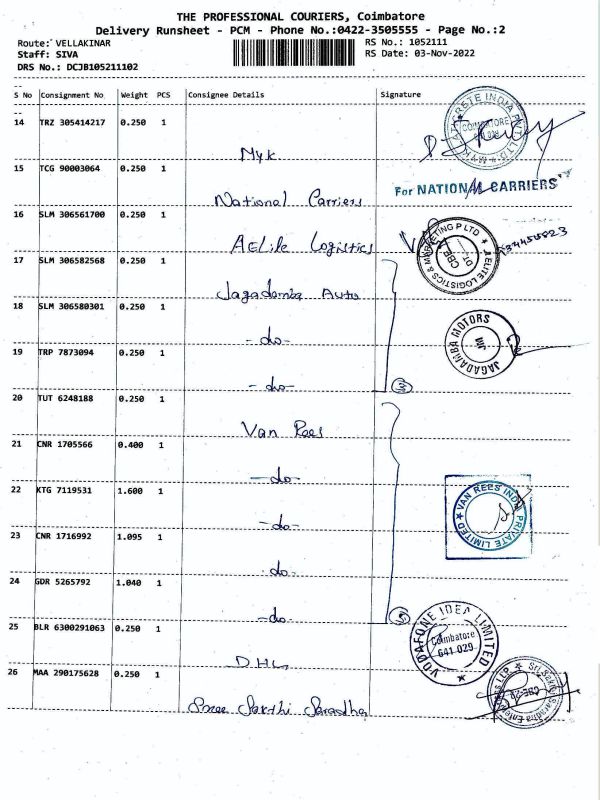 THE PROFESSIONAL COURIERS, Coimbatore
Delivery Runsheet - PCM - Phone No.:0422-3505555 - Page No.:2
Route: VELLAKINAR RS No.: 1052111
Staff: SIVA RS Date: 03-Nov-2022
DRS No.: DCJB105211102
S No Consignment No Weight PCS Consignee Details Signature
14 TRZ 305414217 0.250 1
Myk
COIMBATORE
15 TCG 90003064 0.250 1
National Carriers
For NATIONAL CARRIERS
16 SLM 306561700 0.250 1
AElite Logistics
ELITE LOGISTICS & MARKETING P LTD
CBE
17 SLM 306582568 0.250 1
Jagadamba Auto
18 SLM 306580301 0.250 1
-do-
JAGADAMBA MOTORS
19 TRP 7873094 0.250 1
-do-
3
20 TUT 6248188 0.250 1
Van Rees
21 CNR 1705566 0.400 1
-do-
22 KTG 7119531 1.600 1
-do-
VAN REES INDIA PRIVATE LIMITED
23 CNR 1716992 1.095 1
-do-
24 GDR 5265792 1.040 1
-do-
5
25 BLR 6300291063 0.250 1
DHL
VODAFONE IDEA LIMITED
Coimbatore
641 029
26 MAA 290175628 0.250 1
Sree Sakthi Saradha